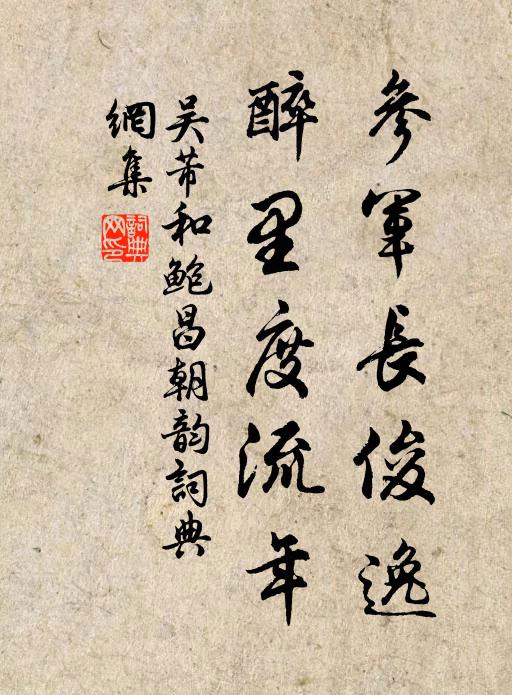 參軍長俊逸
醉里度流年
吴芾和鮑昌朝韵詞典
網集
詞典
网印